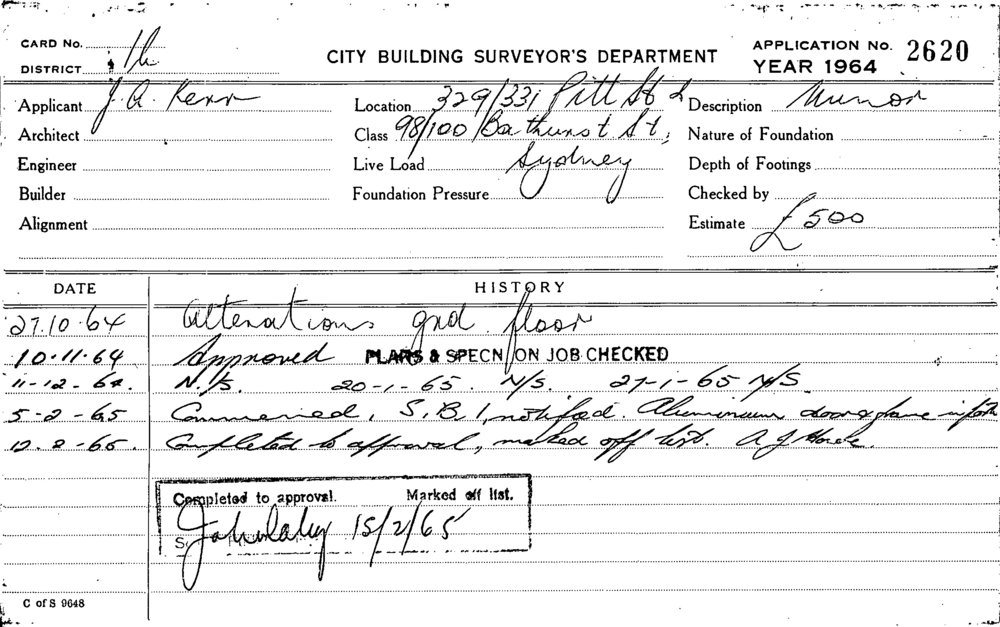 CARD No. 
DISTRICT 1h
CITY BUILDING SURVEYOR'S DEPARTMENT
APPLICATION No. 2620
YEAR 1964
Applicant J. A. Kerr
Location 329/331 Pitt St &
Description Minor
Architect
Class 98/100 Bathurst St,
Nature of Foundation
Engineer
Live Load Sydney
Depth of Footings
Builder
Foundation Pressure
Checked by
Alignment
Estimate £500
DATE HISTORY
27.10.64 Alterations gnd floor
10.11.64 Approved PLANS & SPECN ON JOB CHECKED
11-12-64. N/S. 20-1-65. N/S. 27-1-65 N/S
5-2-65 Commenced, S.B.I. notified. Aluminium door & frame
12.2-65. Completed to approval, marked off list. A J
Completed to approval. Marked off list.
15/2/65
C of S 9648